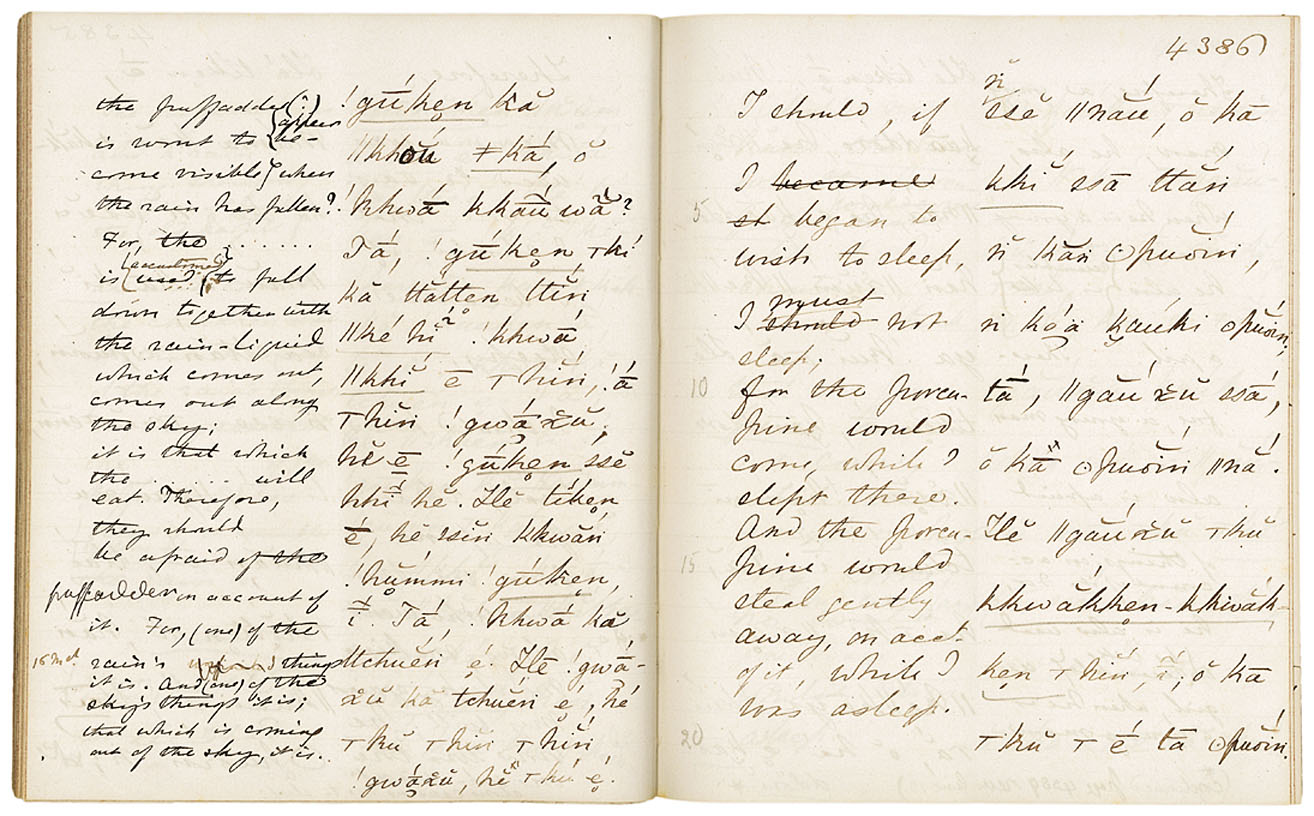 the puffadder (?)
is wont to {appear
be-
come visible} when
the rain has fallen?
For, the .......
is {accustomed
used} to fall
down together with
the rain-liquid
which comes out,
comes out along
the sky;
it is that which
the ..... will
eat. Therefore,
they should
be afraid of the
puffadder on account of
it. For, (one) of the
rain's things
it is. And (one) of the
sky's things it is;
that which is coming
out of the sky, it is.
!gúken kă
ǁkhoú ǂká, ŏ
!khwá kkău wă?
Tá, !gúken ǀkí
kā ttátten ttĭn
ǁké hĭ !khwá
ǁkhĭ ē ǀhĭn, !á
ǀhĭn !gwáxŭ,
hĕ ē !gúken ssĕ
hhĭ hĕ. Hĕ tíken
ē, hĕ ssĭn kkwăn
!hŭmmi !gúken,
ĭ. Tá, !khwá kă
ttchuĕn ĕ. Hĕ !gwá-
xŭ kă tchuĕn ĕ, hé
ǀkŭ ǀhĭn ǀhĭn
!gwáxŭ, hĕ ǀkŭ ĕ.
4386
I should, if
I became
st began to
wish to sleep,
must
I should not
sleep;
for the porcu-
pine would
come, while I
slept there.
And the porcu-
pine would
steal gently
away, on acct.
of it, while I
was asleep.
5
10
15
20
ň
ssĕ ǁnău, ŏ kā
khĭ ssā ttăn
ň kăn ʘpuŏin,
ň kóä kauki ʘpuŏin;
tá, ǁgău xŭ ssá,
ŏ kā ʘpuŏin ǁná.
Hĕ ǁgăuxŭ ǀkŭ
kkwăkken-kkwăk-
ken ǀhĭn, ĭ; ŏ kā
ǀkŭ ǀ é tā ʘpuŏin.